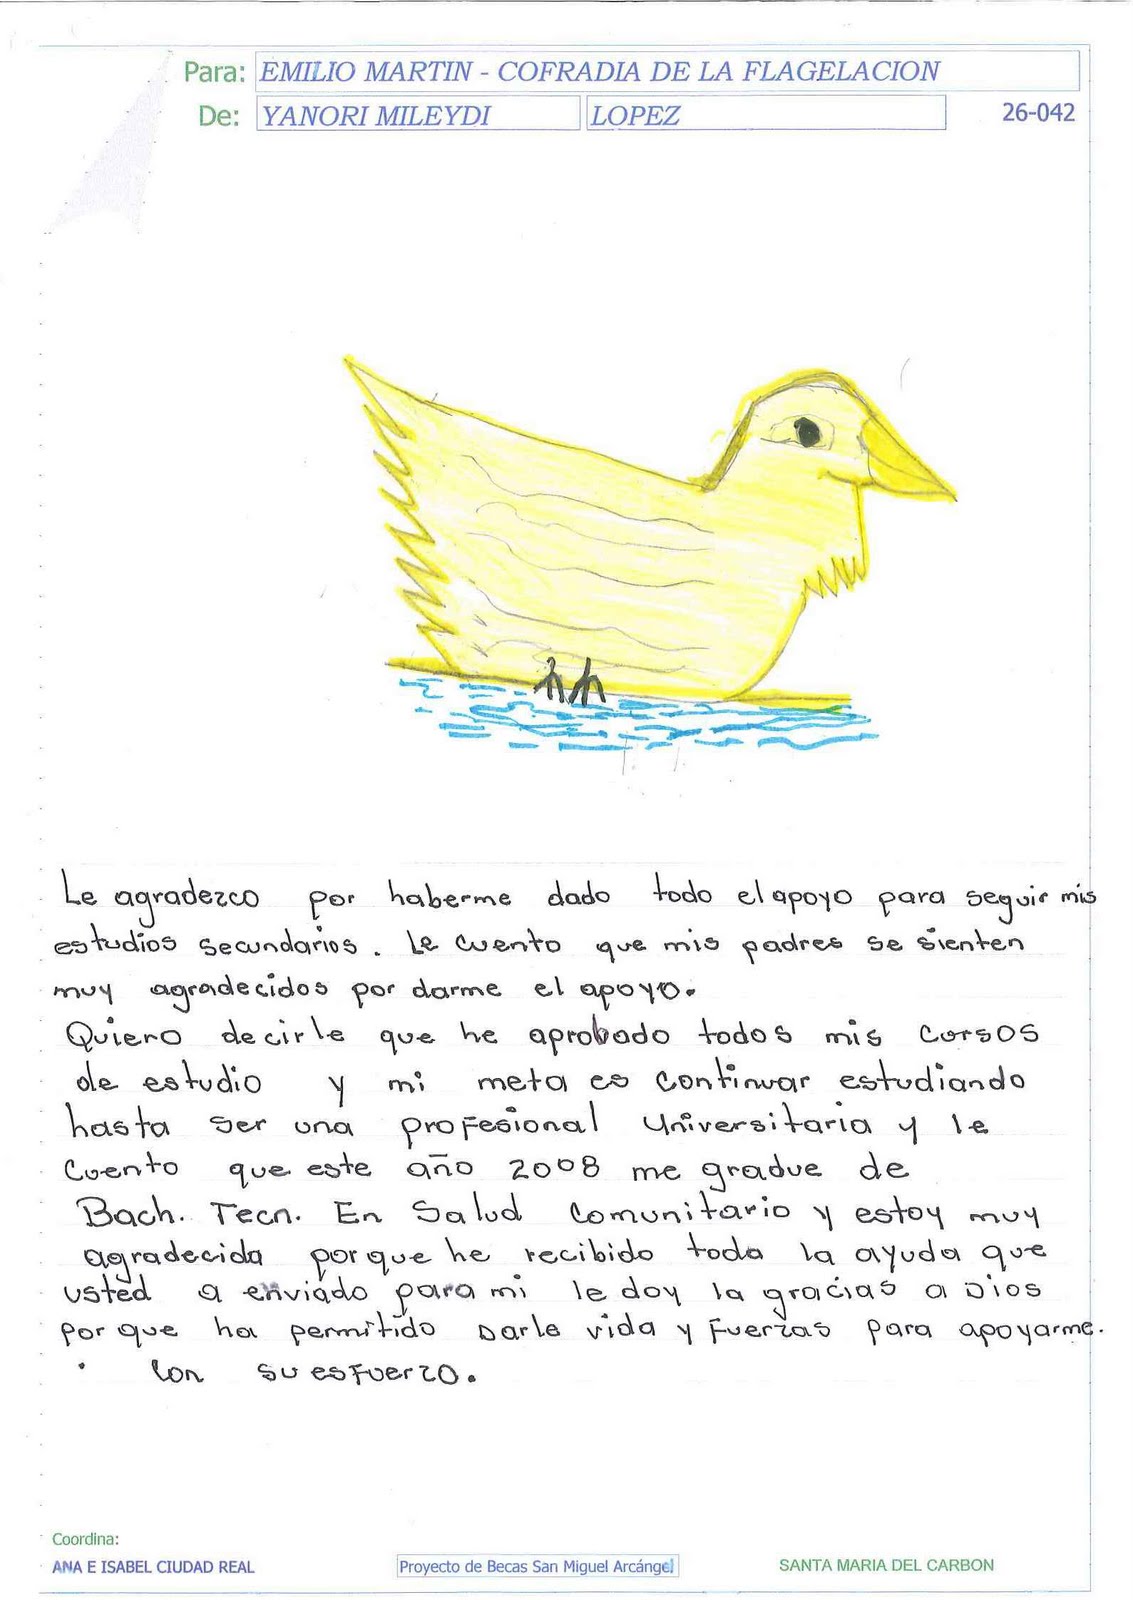 Para: EMILIO MARTIN - COFRADIA DE LA FLAGELACION
De: YANORI MILEYDI LOPEZ 26-042
Le agradezco por haberme dado todo el apoyo para seguir mis
estudios secundarios. Le cuento que mis padres se sienten
muy agradecidos por darme el apoyo.
Quiero decirle que he aprobado todos mis cursos
de estudio y mi meta es continuar estudiando
hasta ser una profesional universitaria y le
cuento que este año 2008 me gradue de
Bach. Tecn. En Salud comunitario y estoy muy
agradecida porque he recibido toda la ayuda que
usted a enviado para mi le doy la gracias a Dios
por que ha permitido Darle vida y fuerzas para apoyarme.
Con su esfuerzo.
Coordina:
ANA E ISABEL CIUDAD REAL Proyecto de Becas San Miguel Arcángel SANTA MARIA DEL CARBON